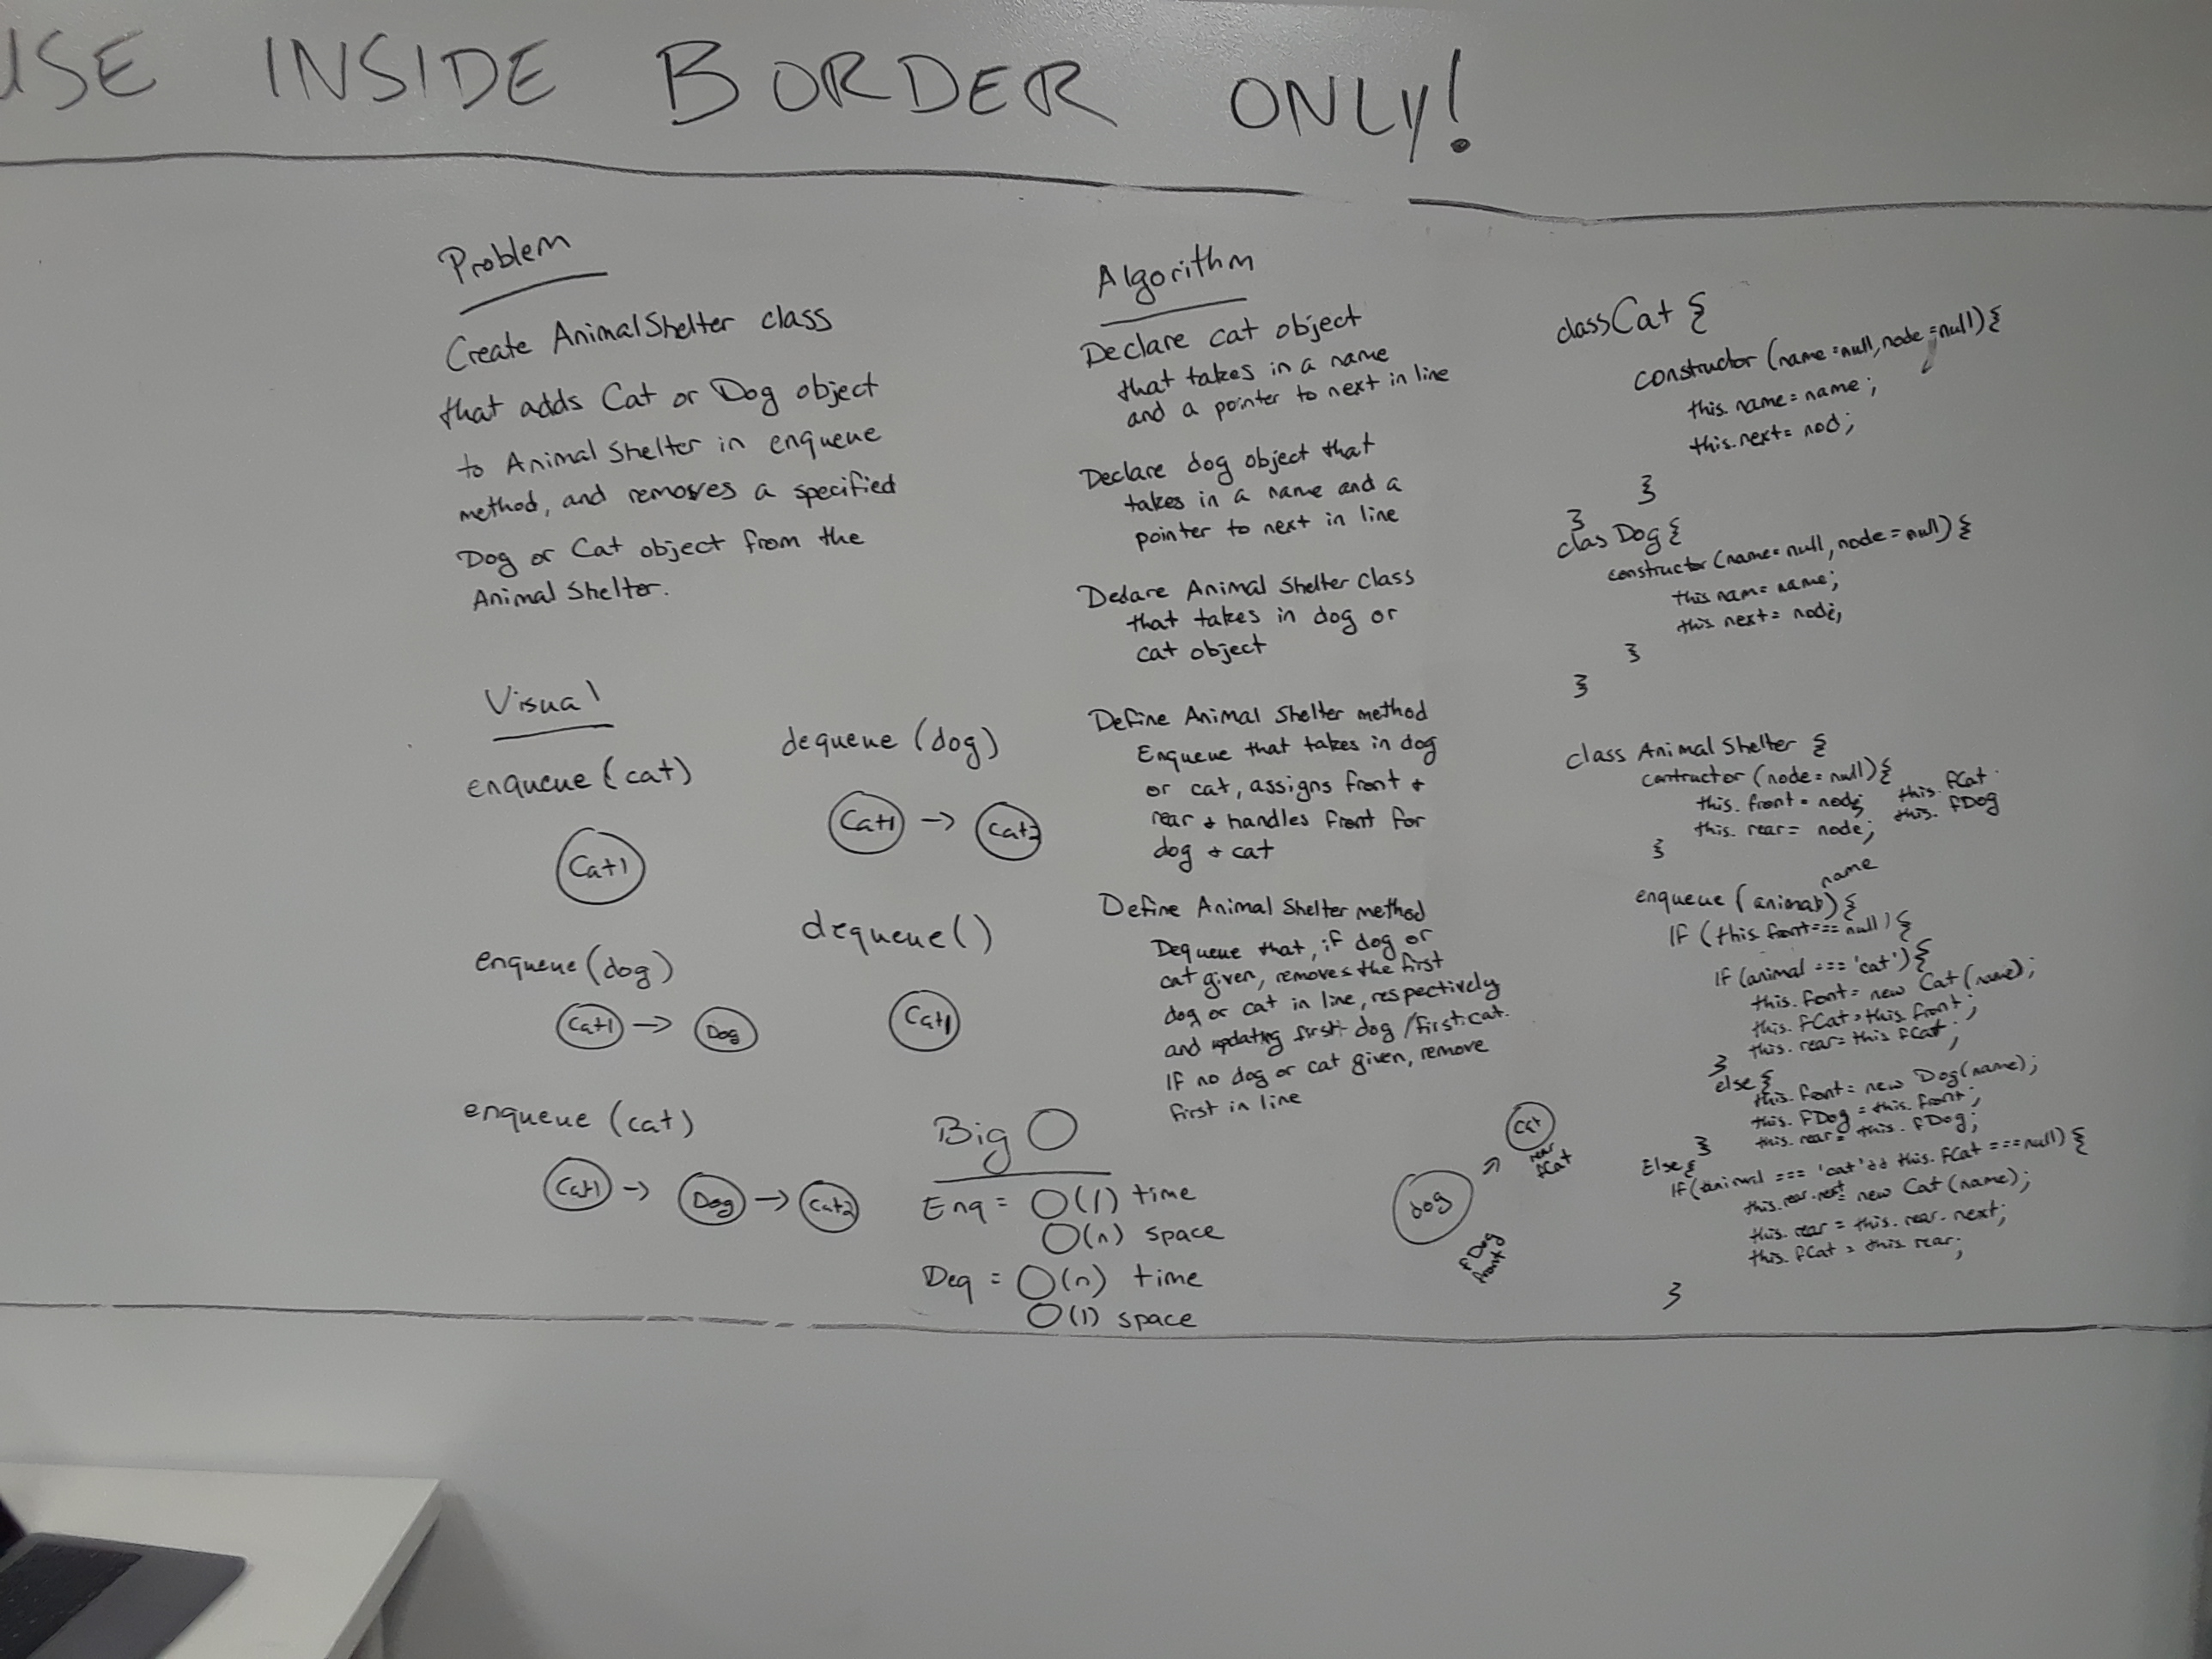 USE INSIDE BORDER ONLY!
Problem
Create AnimalShelter class
that adds Cat or Dog object
to Animal Shelter in enqueue
method, and removes a specified
Dog or Cat object from the
Animal Shelter.
Visual
enqueue (cat)
Cat1
enqueue (dog)
Cat1 → Dog
enqueue (cat)
Cat1 → Dog → Cat2
dequeue (dog)
Cat1 → Cat2
dequeue ()
Cat1
Big O
Enq = O(1) time
O(n) space
Deq = O(n) time
O(1) space
Algorithm
Declare cat object
that takes in a name
and a pointer to next in line
Declare dog object that
takes in a name and a
pointer to next in line
Declare Animal Shelter Class
that takes in dog or
cat object
Define Animal Shelter method
Enqueue that takes in dog
or cat, assigns front +
rear + handles front for
dog + cat
Define Animal Shelter method
Dequeue that, if dog or
cat given, removes the first
dog or cat in line, respectively
and updating first dog/first cat.
IF no dog or cat given, remove
first in line
dog → cat
rear
fCat
fDog
front
class Cat {
constructor (name=null, node=null) {
this.name = name;
this.next = nod;
}
}
clas Dog {
constructor (name=null, node=null) {
this nam= name;
this next = node;
}
}
class Animal Shelter {
contructor (node = null) {
this. front = node; this. fCat
this. rear = node; this. fDog
}
name
enqueue (animal) {
If (this.front === null) {
If (animal === 'cat') {
this. font = new Cat (name);
this. fCat = this. front;
this. rear = this fCat;
}
else {
this. font = new Dog(name);
this. fDog = this. front;
this. rear = this. fDog;
}
Else {
If (animal === 'cat' && this. fCat === null) {
this. rear. next = new Cat (name);
this. rear = this. rear. next;
this. fCat = this. rear;
}